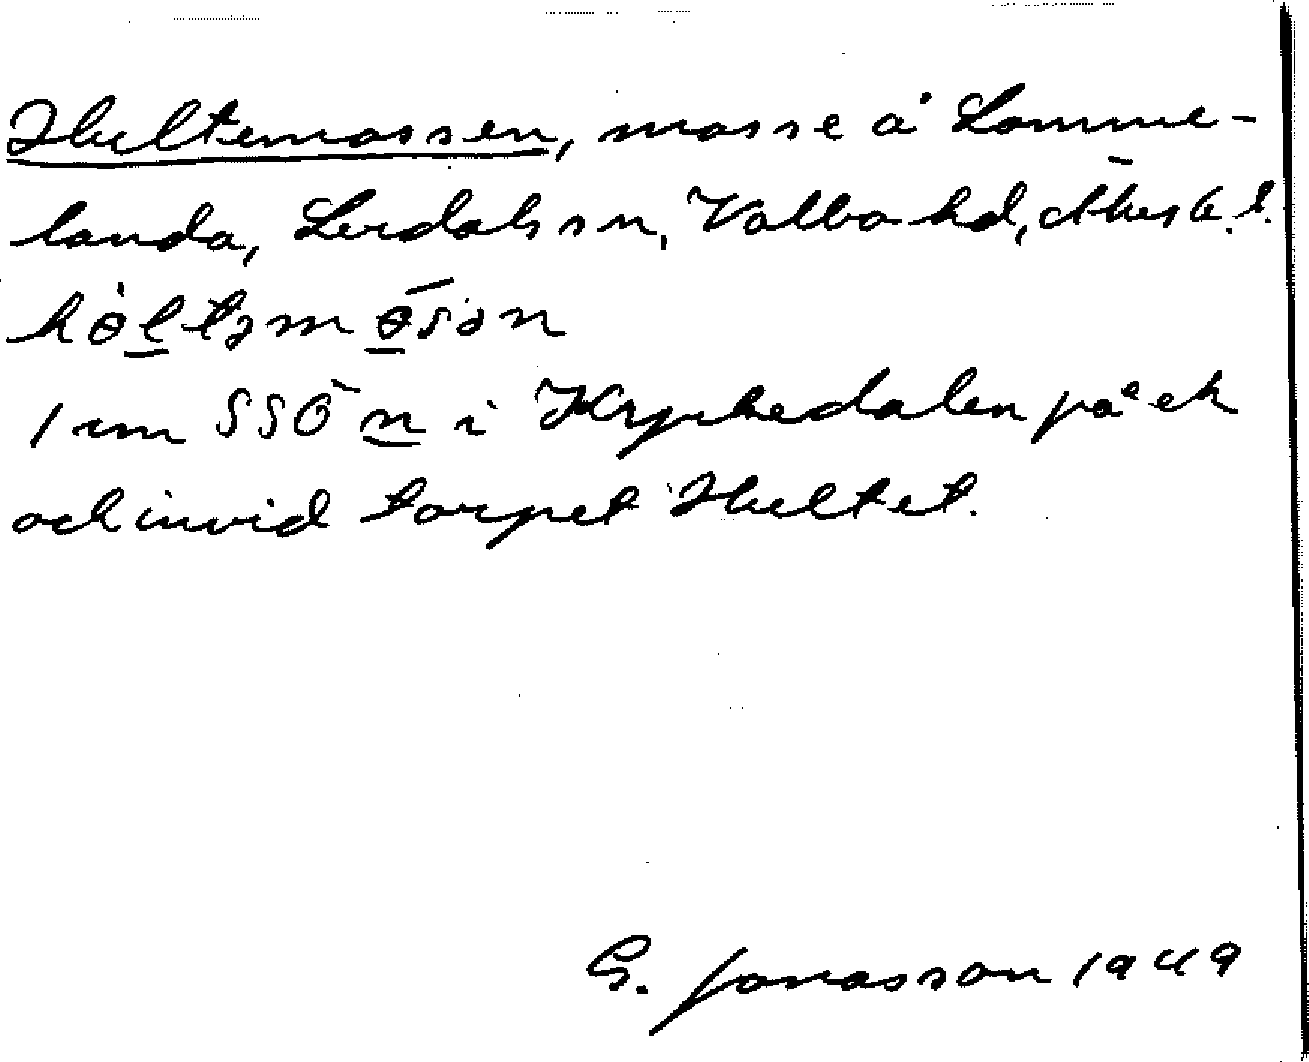 Hultemossen, mosse å Lomme-
landa, Lerdals sn, Valbo hd,
hòltəmǿsən
1 um SSÖ n i Kyrkedalen på ek
och invid torpet Hultet.
G. Jonasson 1949